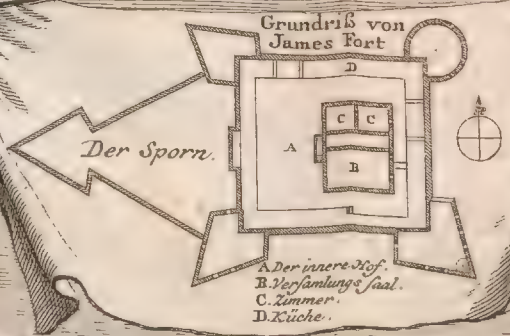 Grundriß von
James Fort
D
C C
A
Der Sporn.
B
A Der innere Hof.
B. Versamlungs saal.
C. Zimmer.
D. Küche.